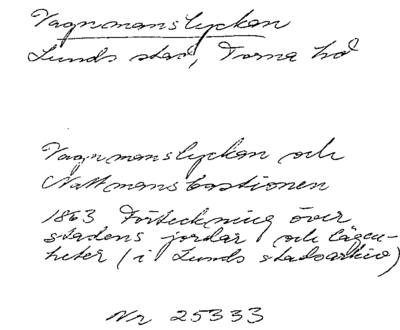 Vagnmanslyckan
Lunds stad, Torna hd
Vagnmanslyckan och
Nattmansbastionen
1863 Förteckning över
stadens jordar och lägen-
heter (i Lunds stadsarkiv)
Nr 25333